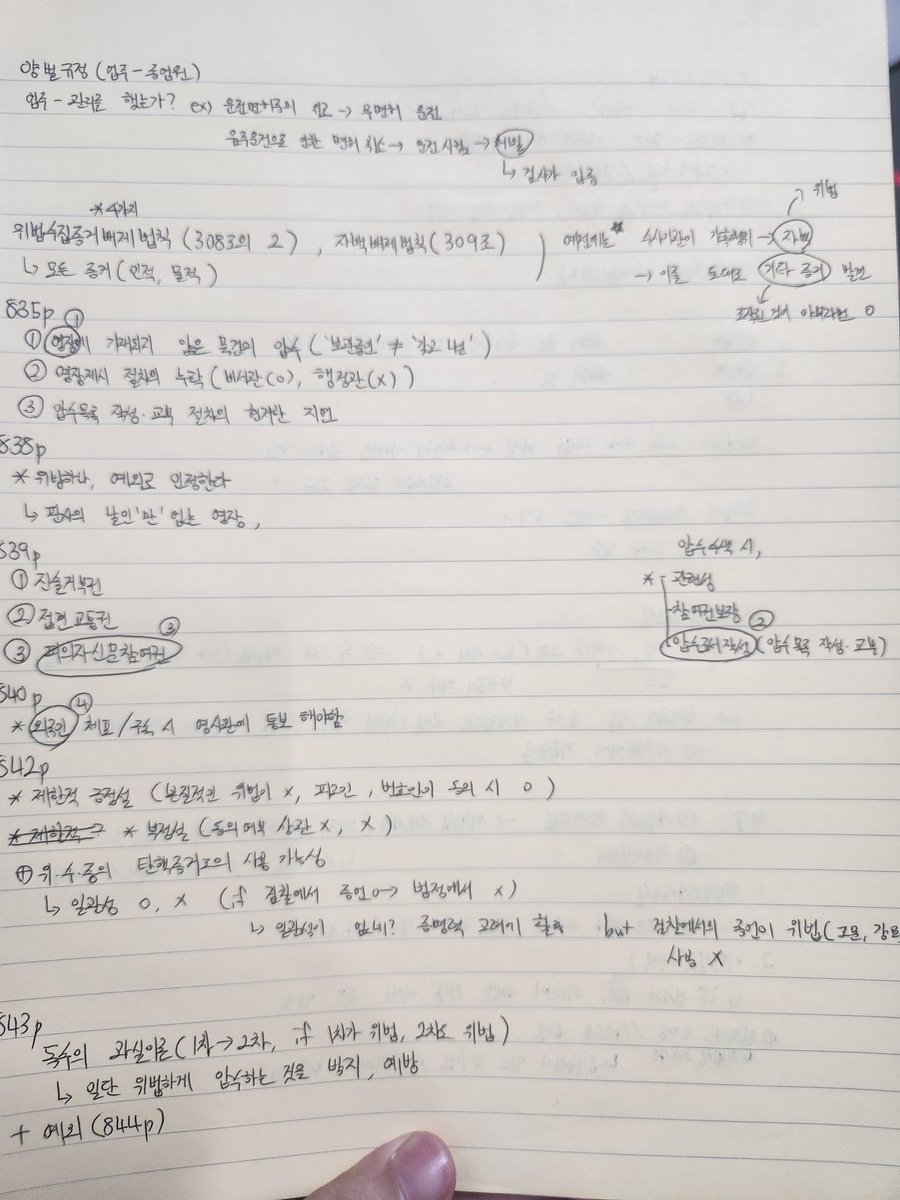 양벌규정 (업주-종업원)
업주-관리를 했는가? ex) 운전면허증의 위조 → 무면허 운전
음주운전으로 인한 면허 취소 → 운전 시킴 → 처벌
↳ 검사가 입증
*4가지
위법수집증거배제법칙 (308조의 2), 자백배제법칙 (309조)
↳ 모든 증거 (인적, 물적)
위법
예전에는 수사기관이 가혹행위 → 자백
→ 이를 토대로 기타 증거 발견
조작된 것이 아니라면 O
835p ①
① 영장에 기재되지 않은 물건의 압수 ('보관중인' ≠ '갖고 나온')
② 영장제시 절차의 누락 (비서관(O), 행정관(X))
③ 압수목록 작성·교부 절차의 현저한 지연
838p
* 위법하나, 예외로 인정한다
↳ 판사의 날인'만' 없는 영장,
839p
① 진술거부권
② 접견교통권
③ 피의자신문참여권 ③
압수수색 시,
* 관련성
- 참여권보장 ②
압수조서작성 (압수목록 작성·교부)
840p ④
* 외국인 체포/구속 시 영사관에 통보 해야함
842p
* 제한적 긍정설 (본질적인 위법이 X, 피고인, 변호인이 동의 시 O)
* 부정설 (동의여부 상관 X, X)
⊕ 위·수·증의 탄핵증거로의 사용 가능성
↳ 일관성 O, X (if 검찰에서 증언O → 법정에서 X)
↳ 일관성이 없네? 증명력 고려에 활용 but 검찰에서의 증언이 위법 (고문, 강요
사용 X
843p
독수의 과실이론 (1차→2차, if 1차가 위법, 2차도 위법)
↳ 일단 위법하게 압수하는 것을 방지, 예방
+ 예외 (844p)